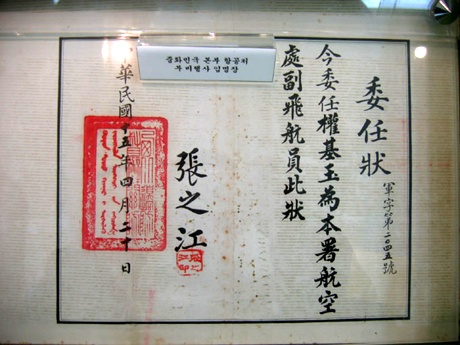 중화민국 본부 항공처
부비행사 임명장
委任狀
軍字第二〇四五號
今委任權基玉為本署航空
處副飛航員此狀
張之江
華民國十五年四月二十日